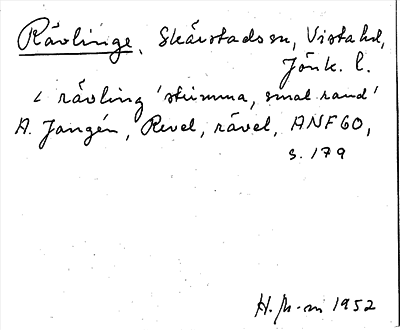 Rävlinge, Skärstads sn, Vista hd,
Jönk. l.
< rävling 'strimma, smal rand'
A. Jangén, Revel, rävel, ANF 60,
s. 179
H. 1952